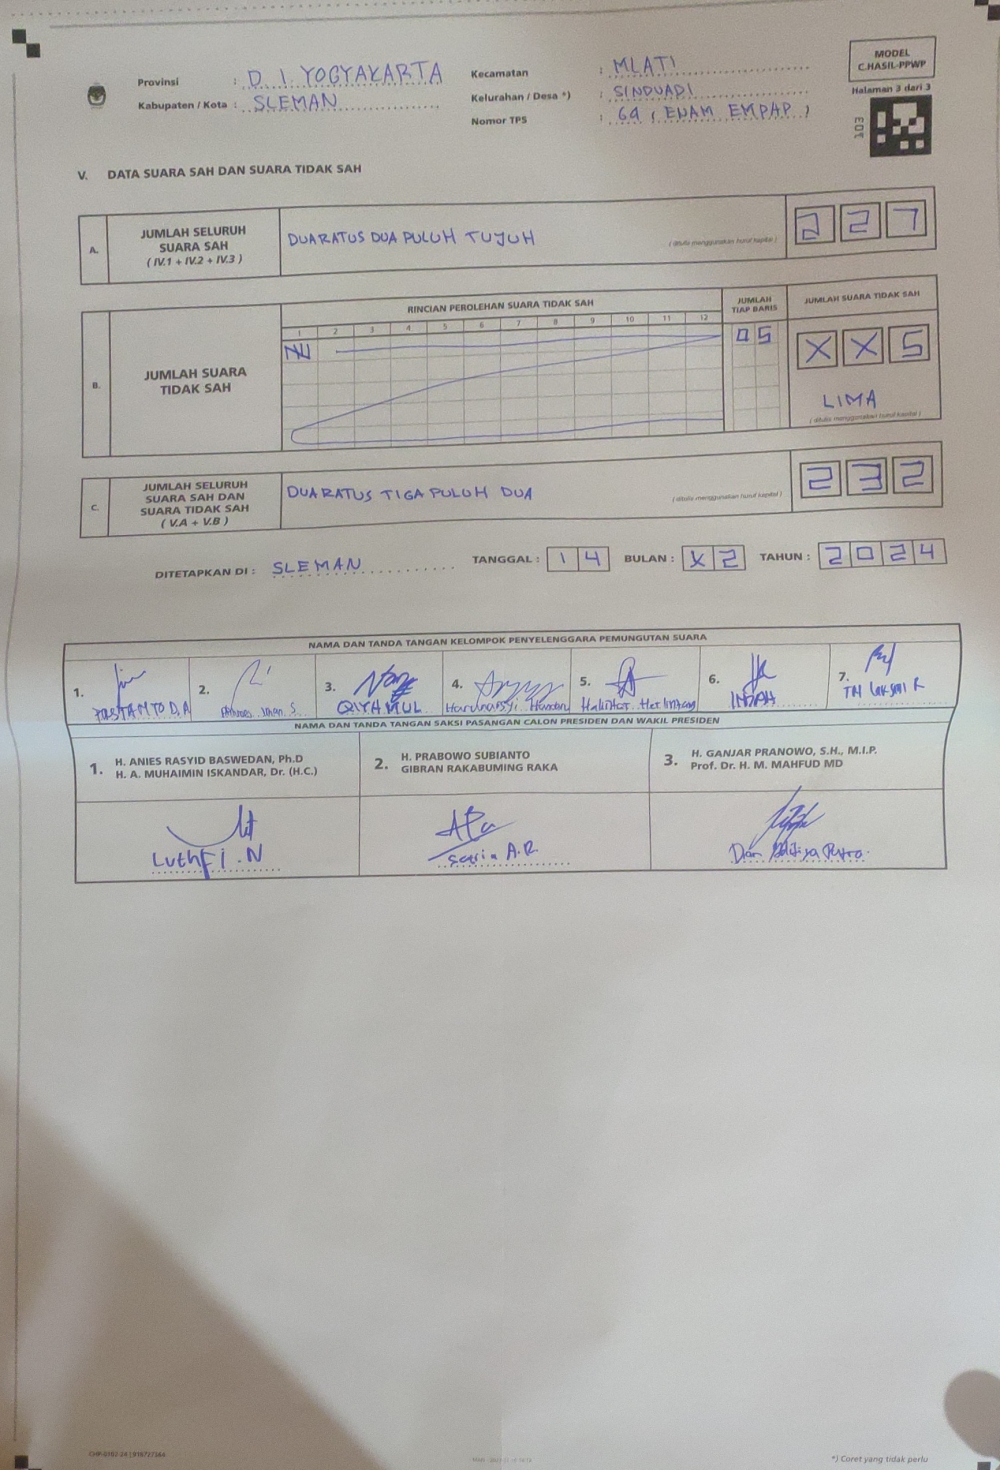 MODEL
C.HASIL-PPWP
Halaman 3 dari 3
Provinsi : D. I. YOGYAKARTA
Kabupaten / Kota : SLEMAN
Kecamatan : MLATI
Kelurahan / Desa *) : SINDUADI
Nomor TPS : 64 ( ENAM EMPAP )
V. DATA SUARA SAH DAN SUARA TIDAK SAH
A. JUMLAH SELURUH
SUARA SAH
( IV.1 + IV.2 + IV.3 )
DUARATUS DUA PULUH TUJUH
( ditulis menggunakan huruf kapital )
2 2 7
B. JUMLAH SUARA
TIDAK SAH
RINCIAN PEROLEHAN SUARA TIDAK SAH
1 2 3 4 5 6 7 8 9 10 11 12
JUMLAH
TIAP BARIS
05
JUMLAH SUARA TIDAK SAH
X X 5
LIMA
( ditulis menggunakan huruf kapital )
C. JUMLAH SELURUH
SUARA SAH DAN
SUARA TIDAK SAH
( V.A + V.B )
DUARATUS TIGA PULUH DUA
( ditulis menggunakan huruf kapital )
2 3 2
DITETAPKAN DI : SLEMAN TANGGAL : 1 4 BULAN : X 2 TAHUN : 2 0 2 4
NAMA DAN TANDA TANGAN KELOMPOK PENYELENGGARA PEMUNGUTAN SUARA
1. 2. 3. 4. 5. 6. 7.
INDAH
NAMA DAN TANDA TANGAN SAKSI PASANGAN CALON PRESIDEN DAN WAKIL PRESIDEN
1. H. ANIES RASYID BASWEDAN, Ph.D
H. A. MUHAIMIN ISKANDAR, Dr. (H.C.)
2. H. PRABOWO SUBIANTO
GIBRAN RAKABUMING RAKA
3. H. GANJAR PRANOWO, S.H., M.I.P.
Prof. Dr. H. M. MAHFUD MD
Luthfi.N
A.R.
*) Coret yang tidak perlu